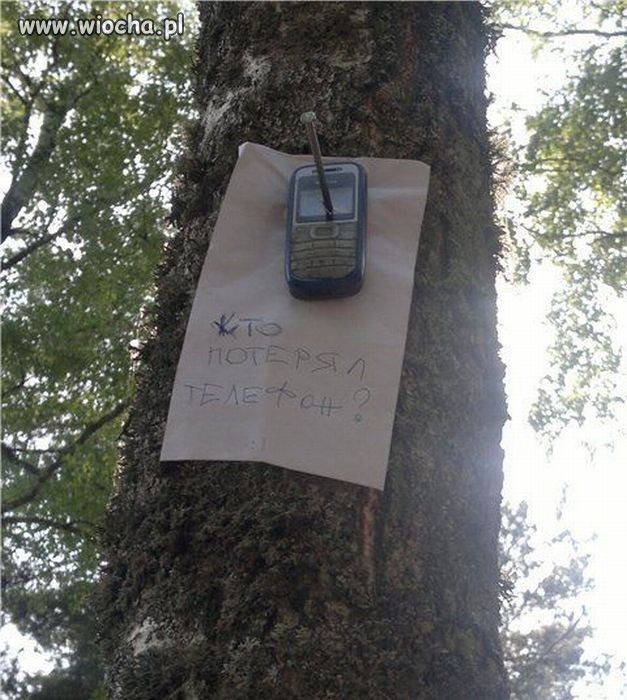 www.wiocha.pl
КТО
ПОТЕРЯЛ
ТЕЛЕФОН?
:)